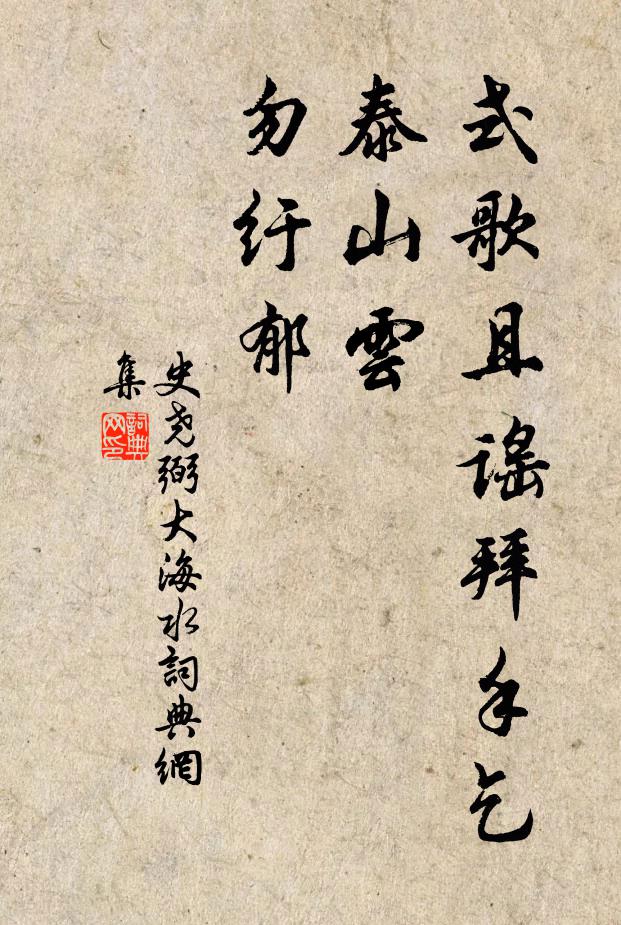 式歌且謠拜手乞
泰山雲
勿紆郁
史尧弼大海水詞典網
集
詞典
网印